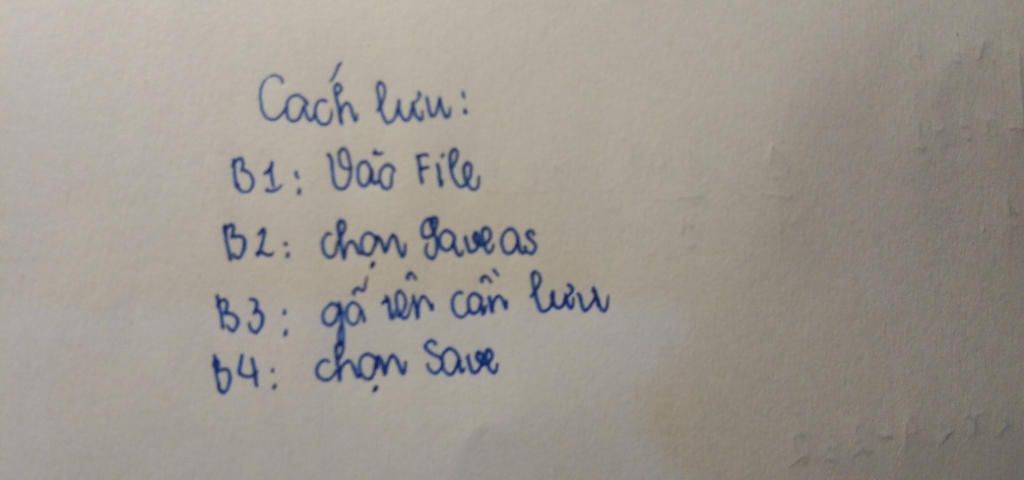 Cách lưu:
B1: Vào File
B2: chọn Save as
B3: gõ tên cần lưu
B4: chọn Save